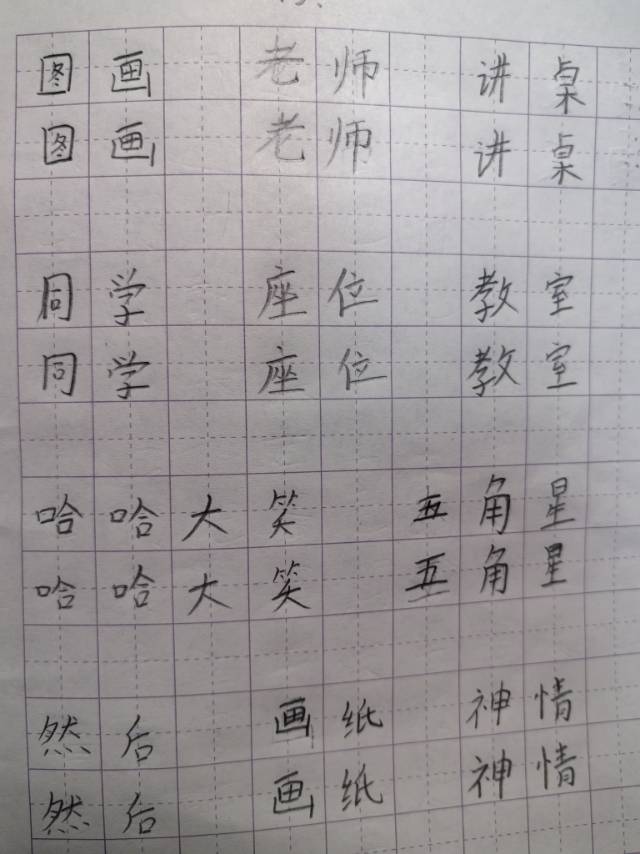 图画 老师 讲桌
图画 老师 讲桌
同学 座位 教室
同学 座位 教室
哈哈大笑 五角星
哈哈大笑 五角星
然后 画纸 神情
然后 画纸 神情